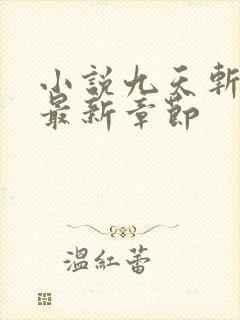 小說九天斬
最新章節
溫紅蕾